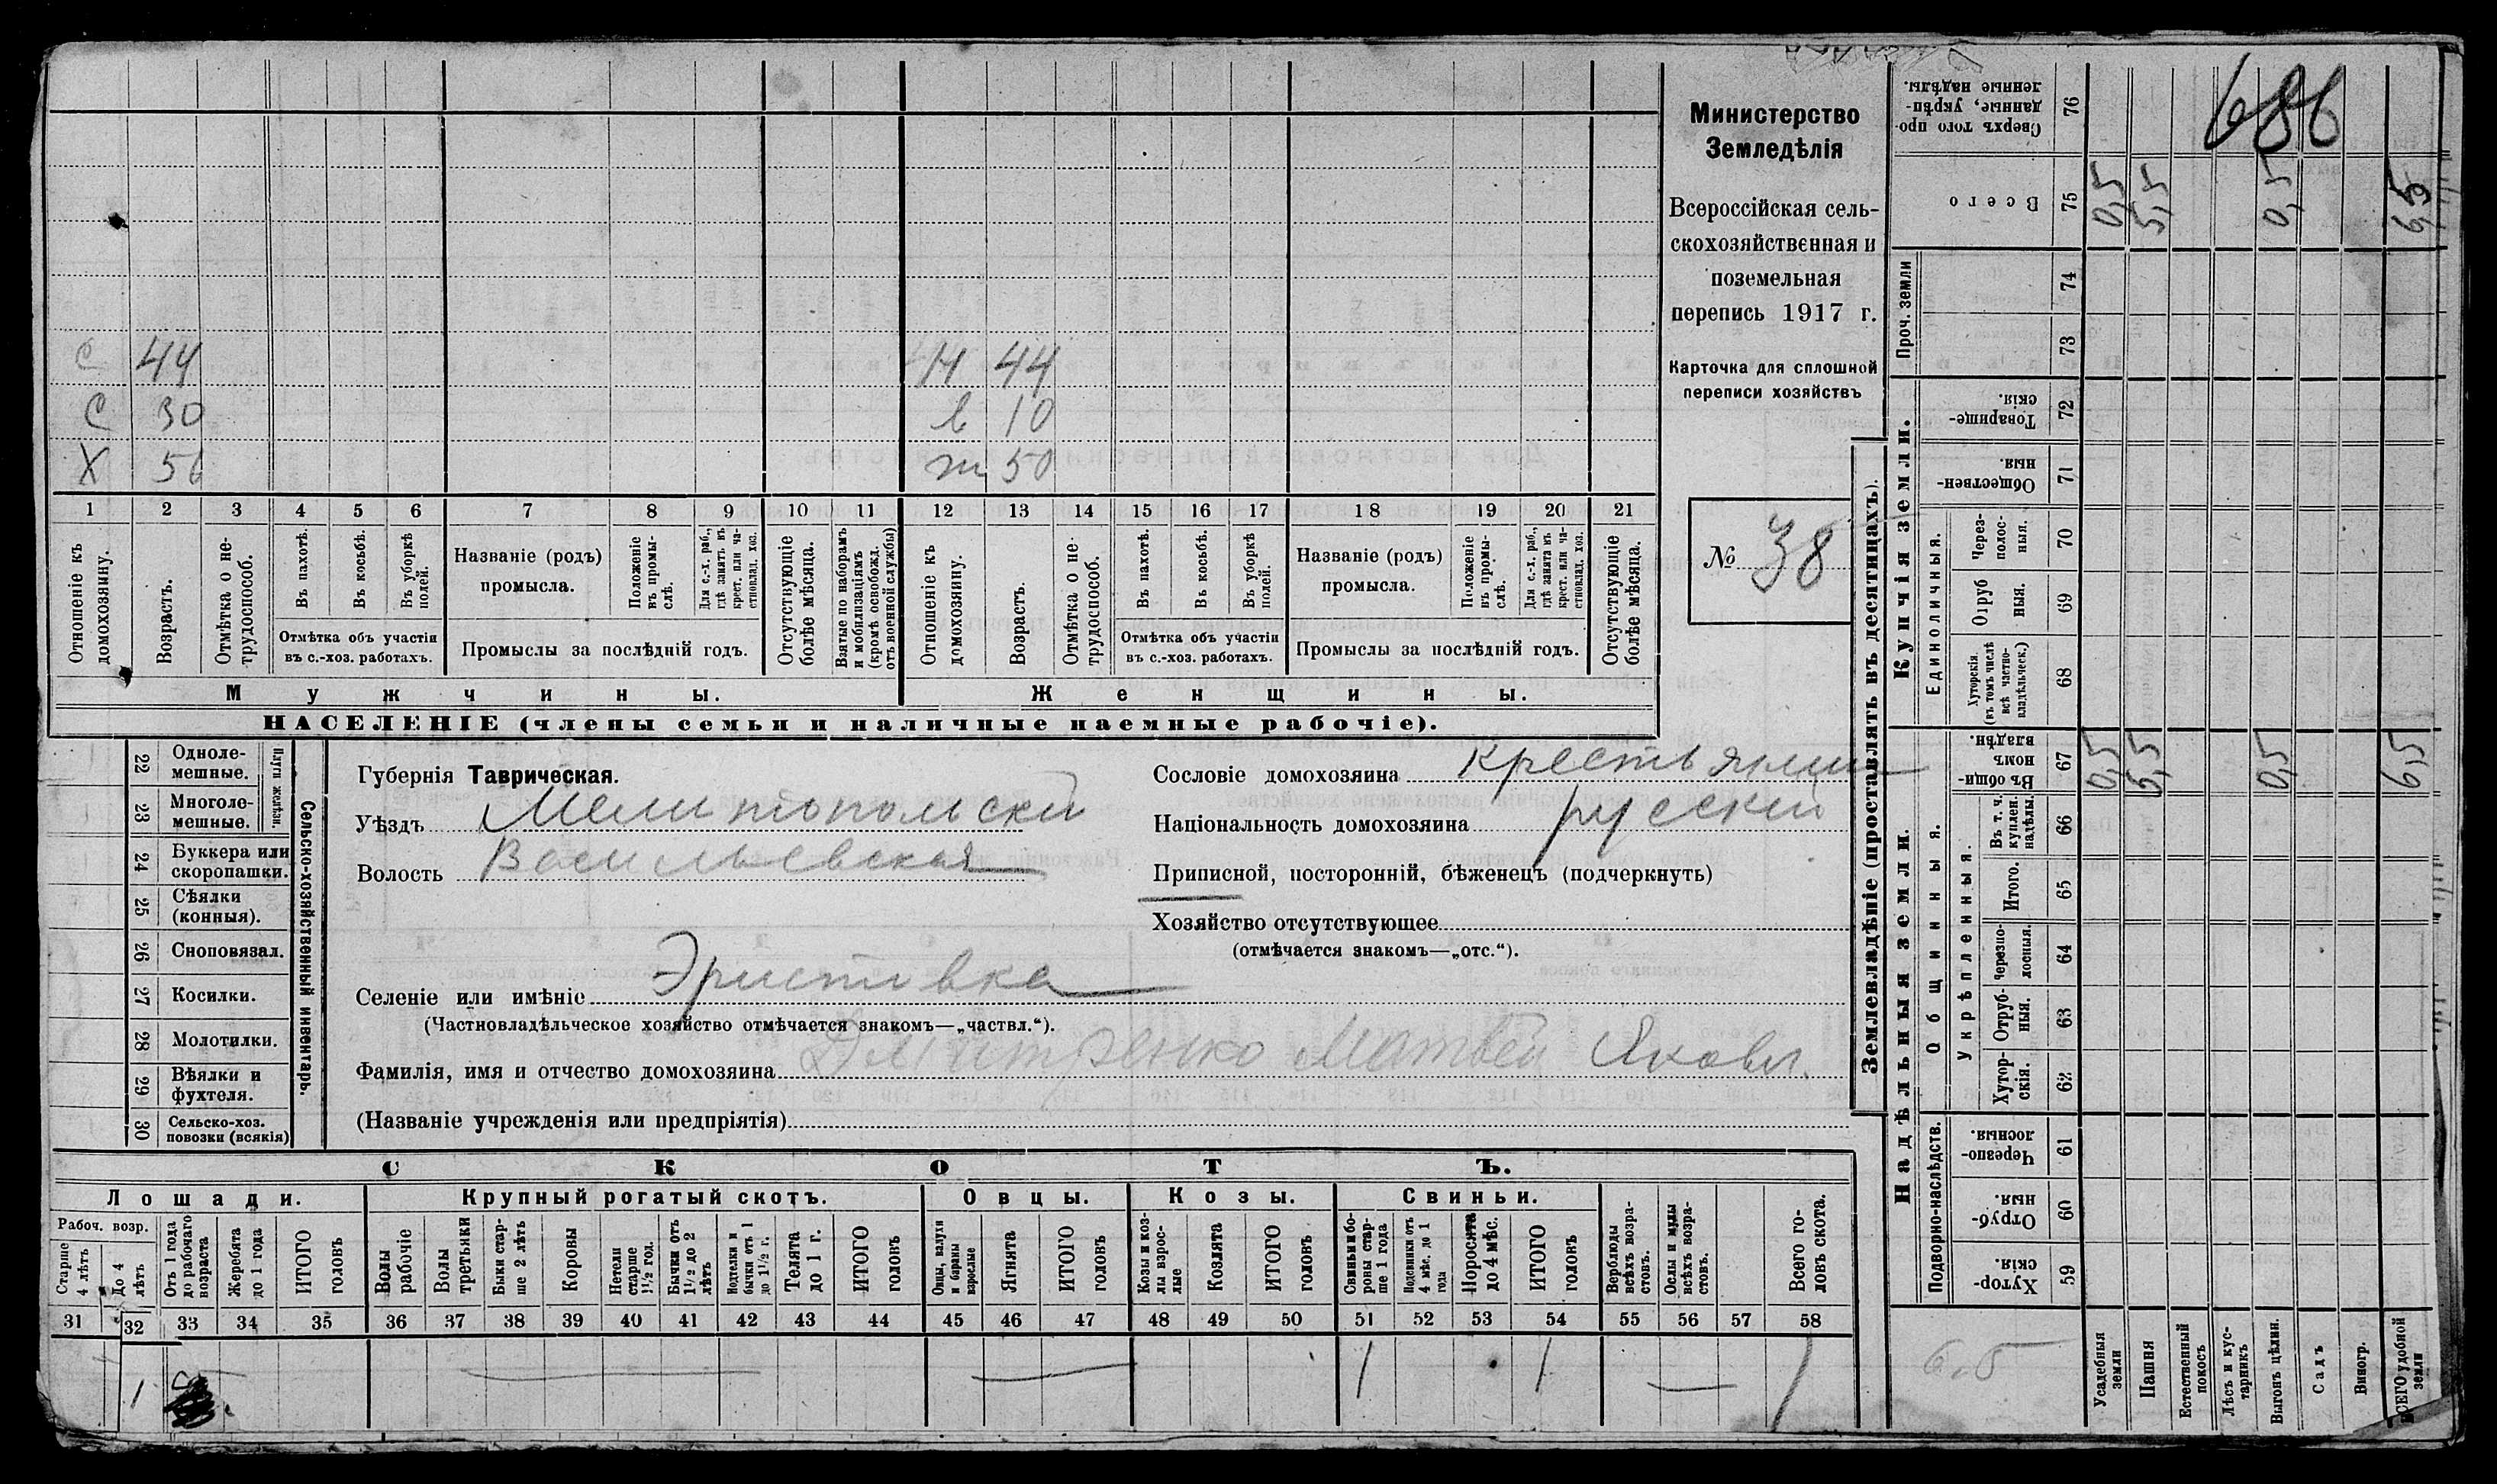 С 44 Н 44
С 30 в 10
Х 56 ж 50
1 2 3 4 5 6 7 8 9 10 11 12 13 14 15 16 17 18 19 20 21
Отношеніе къ домохозяину.
Возрастъ.
Отмѣтка о нетрудоспособ.
Въ пахотѣ.
Въ косьбѣ.
Въ уборкѣ полей.
Отмѣтка объ участіи
въ с.-хоз. работахъ.
Названіе (родъ)
промысла.
Положеніе въ промы-слѣ.
Для с.-х. раб., гдѣ занятъ въ крест. или ча-стновлад. хоз.
Промыслы за послѣдній годъ.
Отсутствующіе болѣе мѣсяца.
Взятые по наборамъ и мобилизаціямъ (кромѣ освобожд. отъ военной службы)
Отношеніе къ домохозяину.
Возрастъ.
Отмѣтка о не-трудоспособ.
Въ пахотѣ.
Въ косьбѣ.
Въ уборкѣ полей.
Отмѣтка объ участіи
въ с.-хоз. работахъ.
Названіе (родъ)
промысла.
Положеніе въ промы-слѣ.
Для с.-х. раб., гдѣ занята въ крест. или ча-стновлад. хоз.
Промыслы за послѣдній годъ.
Отсутствующіе болѣе мѣсяца.
Мужчины.
Женщины.
НАСЕЛЕНІЕ (члены семьи и наличные наемные рабочіе).
Министерство
Земледѣлія
Всероссійская сель-
скохозяйственная и
поземельная
перепись 1917 г.
Карточка для сплошной
переписи хозяйствъ
№ 38
22 Одноле-мешные.
23 Многоле-мешные.
Плуги желѣзн.
24 Буккера или скоропашки.
25 Сѣялки (конныя).
26 Сноповязал.
27 Косилки.
28 Молотилки.
29 Вѣялки и фухтеля.
30 Сельско-хоз. повозки (всякія)
Сельско-хозяйственный инвентарь.
Губернія Таврическая.
Уѣздъ Мелитопольскій
Волость Васильевская
Сословіе домохозяина крестьянин
Національность домохозяина русскій
Приписной, посторонній, бѣженецъ (подчеркнуть)
Хозяйство отсутствующее
(отмѣчается знакомъ—„отс.“).
Селеніе или имѣніе Эристовка
(Частновладѣльческое хозяйство отмѣчается знакомъ—„частвл.“).
Фамилія, имя и отчество домохозяина Дмитренко Матвей Яковл.
(Названіе учрежденія или предпріятія)
СКОТЪ.
Лошади. Крупный рогатый скотъ. Овцы. Козы. Свиньи.
Рабоч. возр.
Старше 4 лѣтъ
До 4 лѣтъ
Отъ 1 года до рабочаго возраста
Жеребята до 1 года
ИТОГО головъ
Волы рабочіе
Волы третьяки
Быки стар-ше 2 лѣтъ
Коровы
Нетели старше 1½ год.
Бычки отъ 1½ до 2 лѣтъ
Подтелки и бычки отъ 1 до 1½ г.
Телята до 1 г.
ИТОГО головъ
Овцы, валухи и бараны взрослые
Ягнята
ИТОГО головъ
Козы и коз-лы взрос-лые
Козлята
ИТОГО головъ
Свиньи и бо-ровы стар-ше 1 года
Подсвинки отъ 4 мѣс. до 1 года
Поросята до 4 мѣс.
ИТОГО головъ
Верблюды всѣхъ возра-стовъ.
Ослы и мулы всѣхъ возра-стовъ.
Всего го-ловъ скота.
31 32 33 34 35 36 37 38 39 40 41 42 43 44 45 46 47 48 49 50 51 52 53 54 55 56 57 58
1 1 1 1
Землевладѣніе (проставлять въ десятинахъ).
686
Сверхъ того про-данные, укрѣп-ленные надѣлы. 76
Всего 75 0,5 5,5 0,5 6,5
Проч. земли
74
73
Купчія земли.
Товарище-скія. 72
Обществен-ныя. 71
Единоличныя.
Через-полос-ныя. 70
Отруб-ныя. 69
Хуторскія. (въ томъ числѣ всѣ частно-владѣльческ.) 68
Надѣльныя земли.
Общинныя.
Въ общин-номъ владѣн. 67 0,5 5,5 0,5 6,5
Укрѣпленныя.
Въ т. ч. куплен. надѣлы. 66
Итого. 65
Черезпо-лосныя. 64
Отруб-ныя. 63
Хутор-скія. 62
Подворно-наслѣдств.
Черезпо-лосныя. 61
Отруб-ныя. 60
Хутор-скія. 59
6,5
Усадебныя земли
Пашня
Естественный покосъ
Лѣсъ и кус-тарникъ
Выгонъ цѣлин.
Садъ
Виногр.
ВСЕГО удобной земли